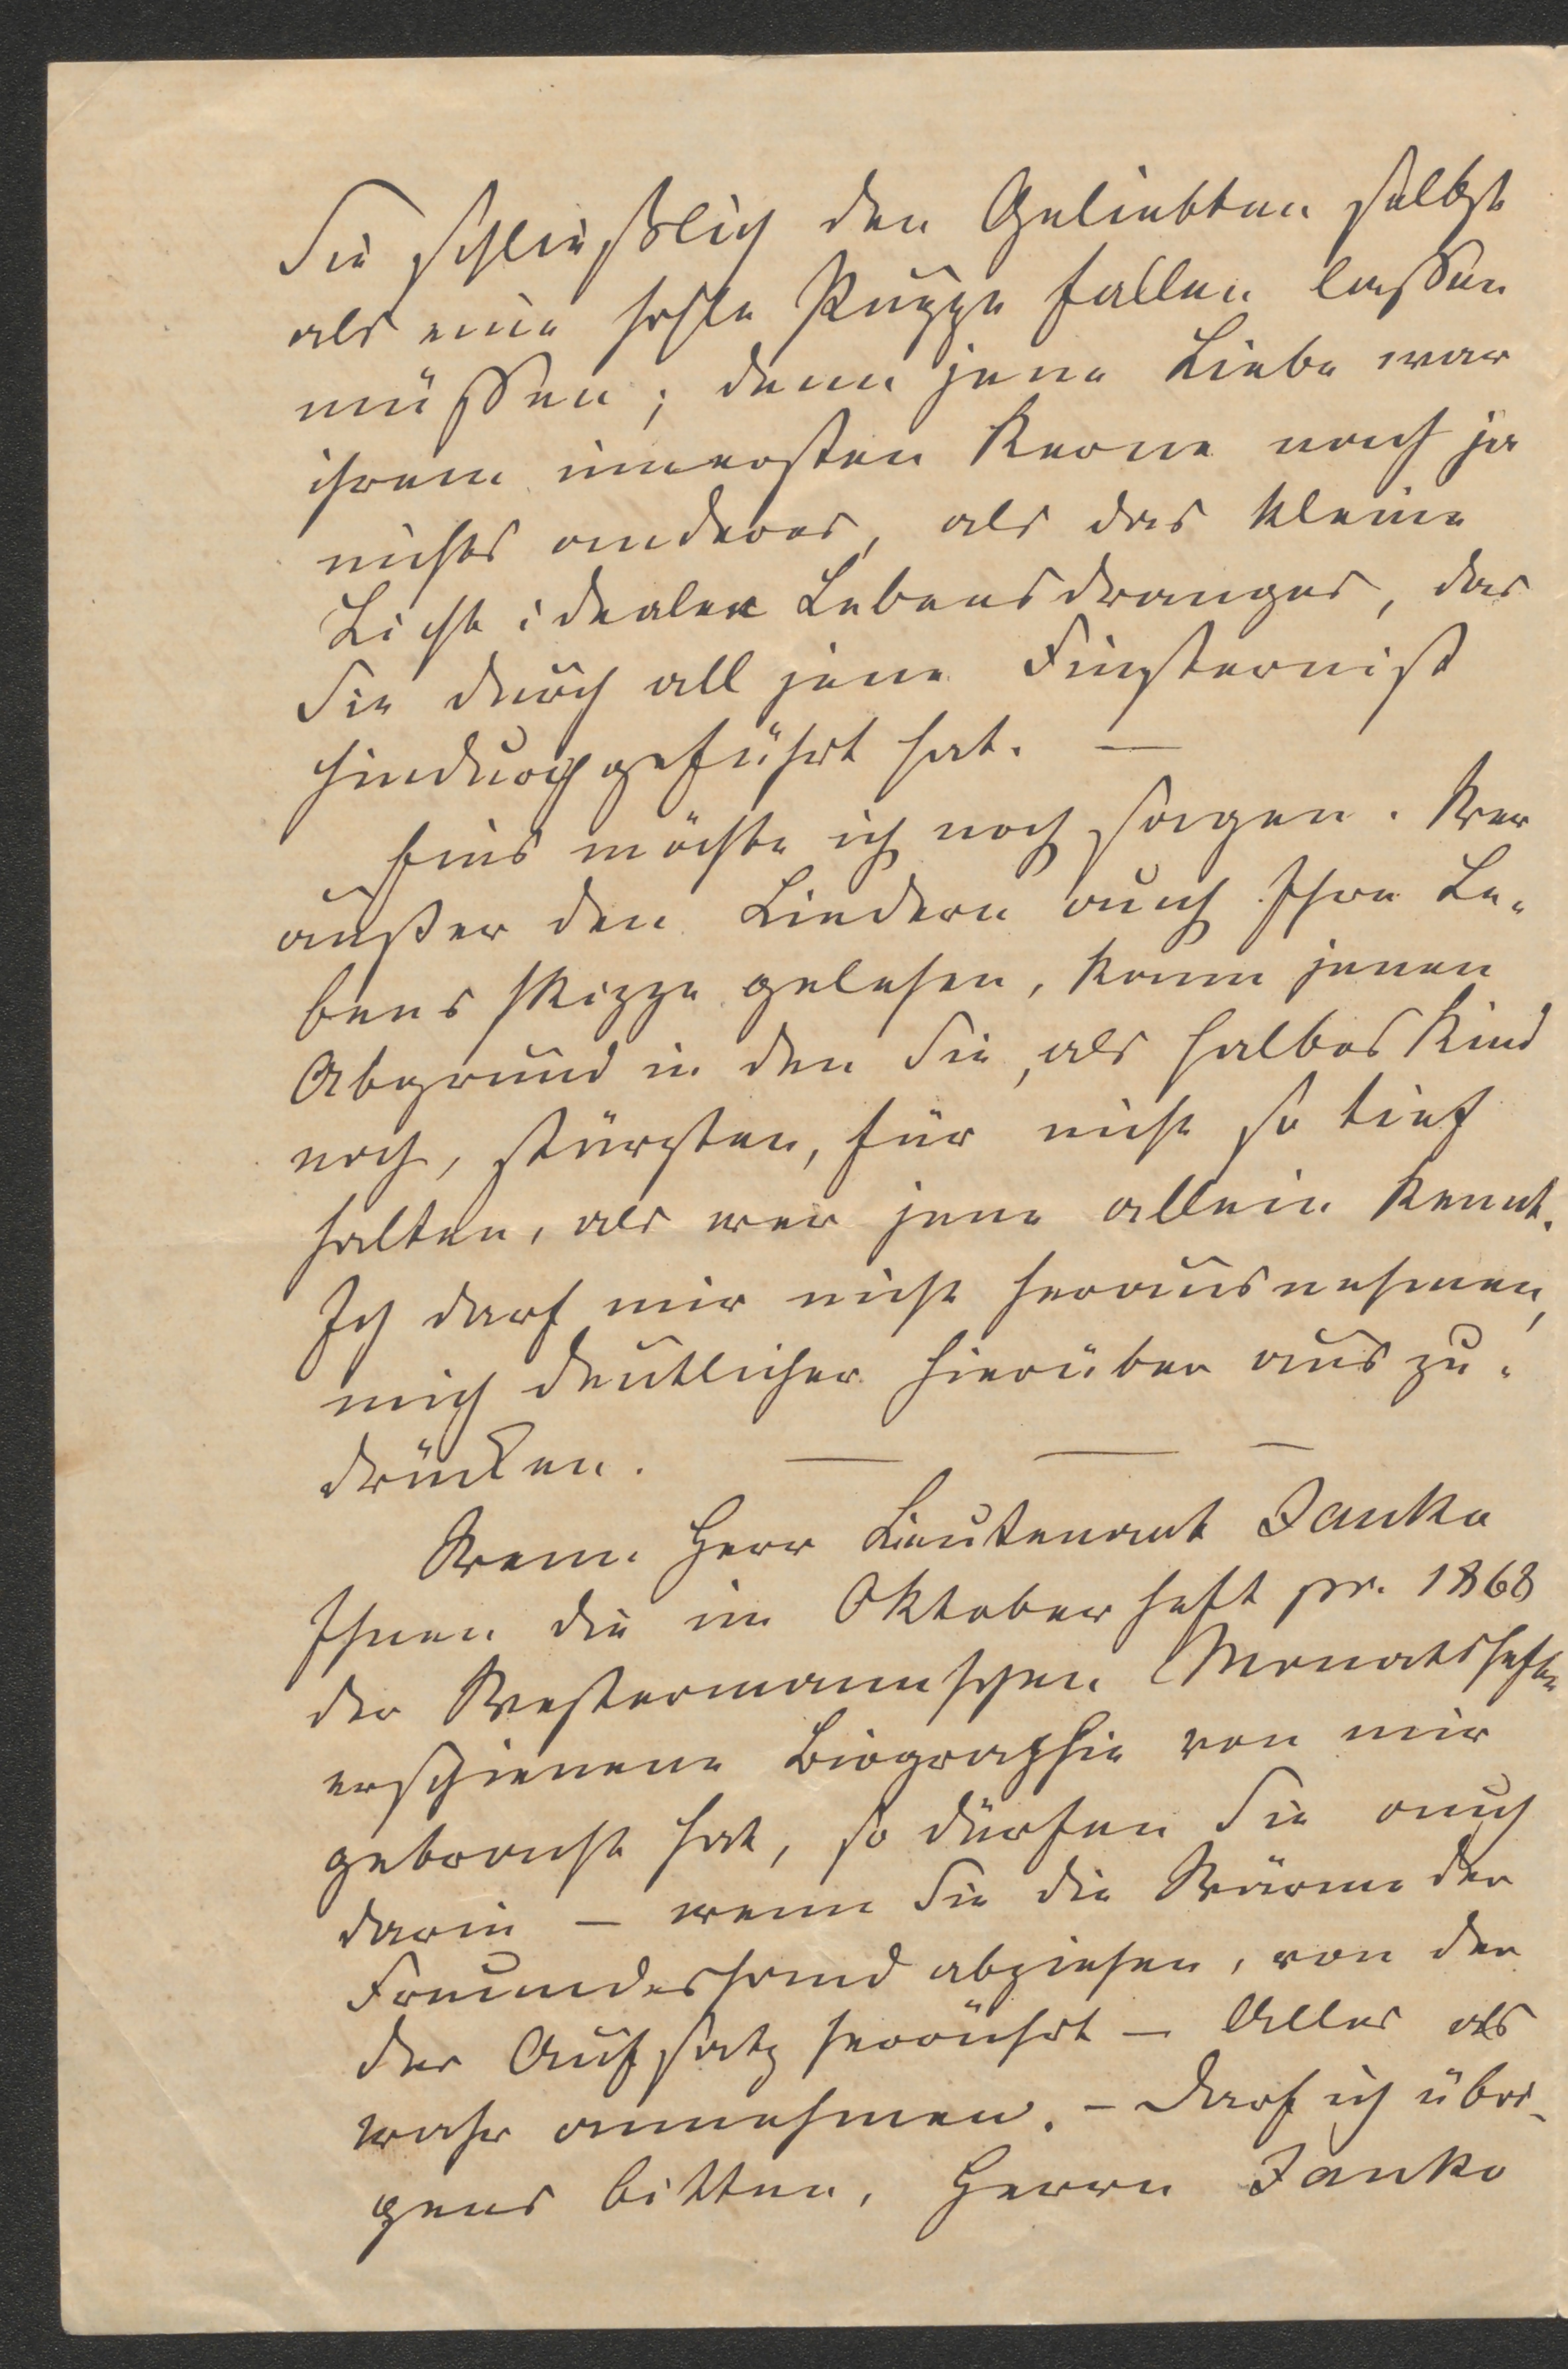 Sie schließlich den Geliebten selbst
als eine hohle Puppe fallen lassen
müssen; denn jene Liebe war
ihrem innersten Kerne nach ja
nichts anderes, als das kleine
Licht idealen Lebensdranges, das
Sie durch all jene Finsterniß
hindurchgeführt hat. —
Eins möchte ich noch sagen. Wer
außer den Liedern auch Ihre Le-
bensskizze gelesen, kann jenen
Abgrund in den Sie, als halbes Kind
noch, stürzten, für nicht so tief
halten, als wer jene allein kennt.
Ich darf mir nicht herausnehmen,
mich deutlicher hierüber auszu-
drücken. — — —
Wenn Herr Lieutenant Janko
Ihnen die im Oktoberheft pr. 1868
der Westermannschen Monatshefte
erschienene Biographie von mir
gebracht hat, so dürfen Sie auch
darin — wenn Sie die Wärme der
Freundeshand abziehen, von der
der Aufsatz herrührt — Alles als
wahr annehmen. — Darf ich übri-
gens bitten, Herrn Janko